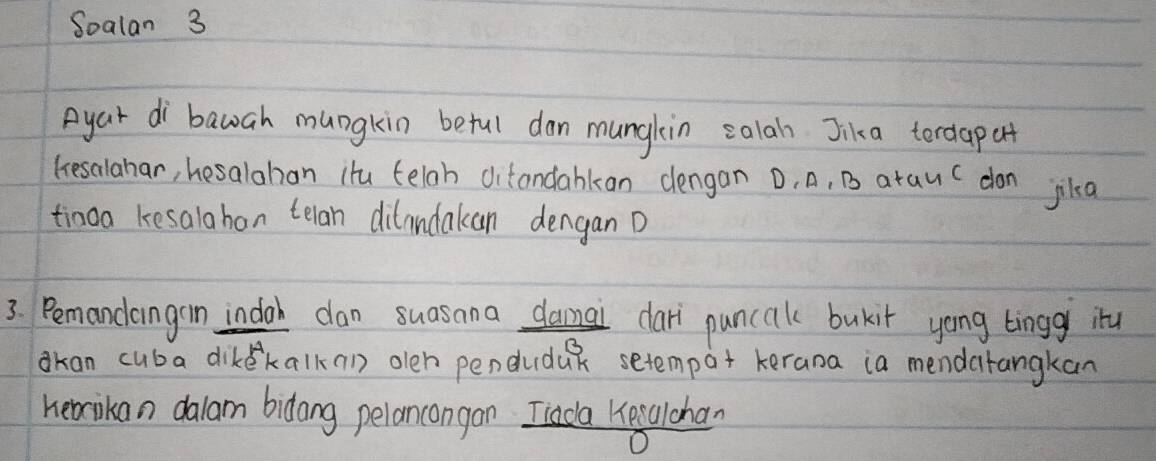 Soalan 3
Ayat di bawah mungkin betul dan mungkin salah Jika terdapat
kesalahan, kesalahan itu telah ditandahkan dengan D, A, B atau C dan jika
tinda kesalahan telah ditandakan dengan D
3. Pemandangan indah dan suasana damai dari puncak bukit yang tinggi itu
A B
akan cuba dikekalkan oleh penduduk setempat kerana ia mendatangkan
kebaikan dalam bidang pelancongan Tiada kesalahan
D